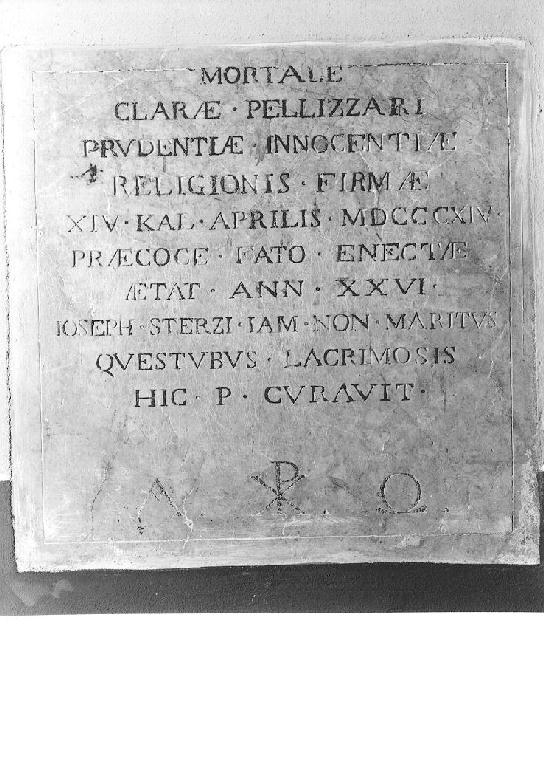 MORTALE
CLARÆ · PELLIZZARI
PRVDENTIÆ · INNOCENTIÆ
RELIGIONIS · FIRMÆ
XIV · KAL · APRILIS · MDCCCXIV ·
PRÆCOCE · FATO · ENECTÆ
ÆTAT · ANN · XXVI ·
IOSEPH · STERZI · IAM · NON · MARITVS
QVESTVBVS · LACRIMOSIS
HIC · P · CVRAVIT ·
A ☧ Ω